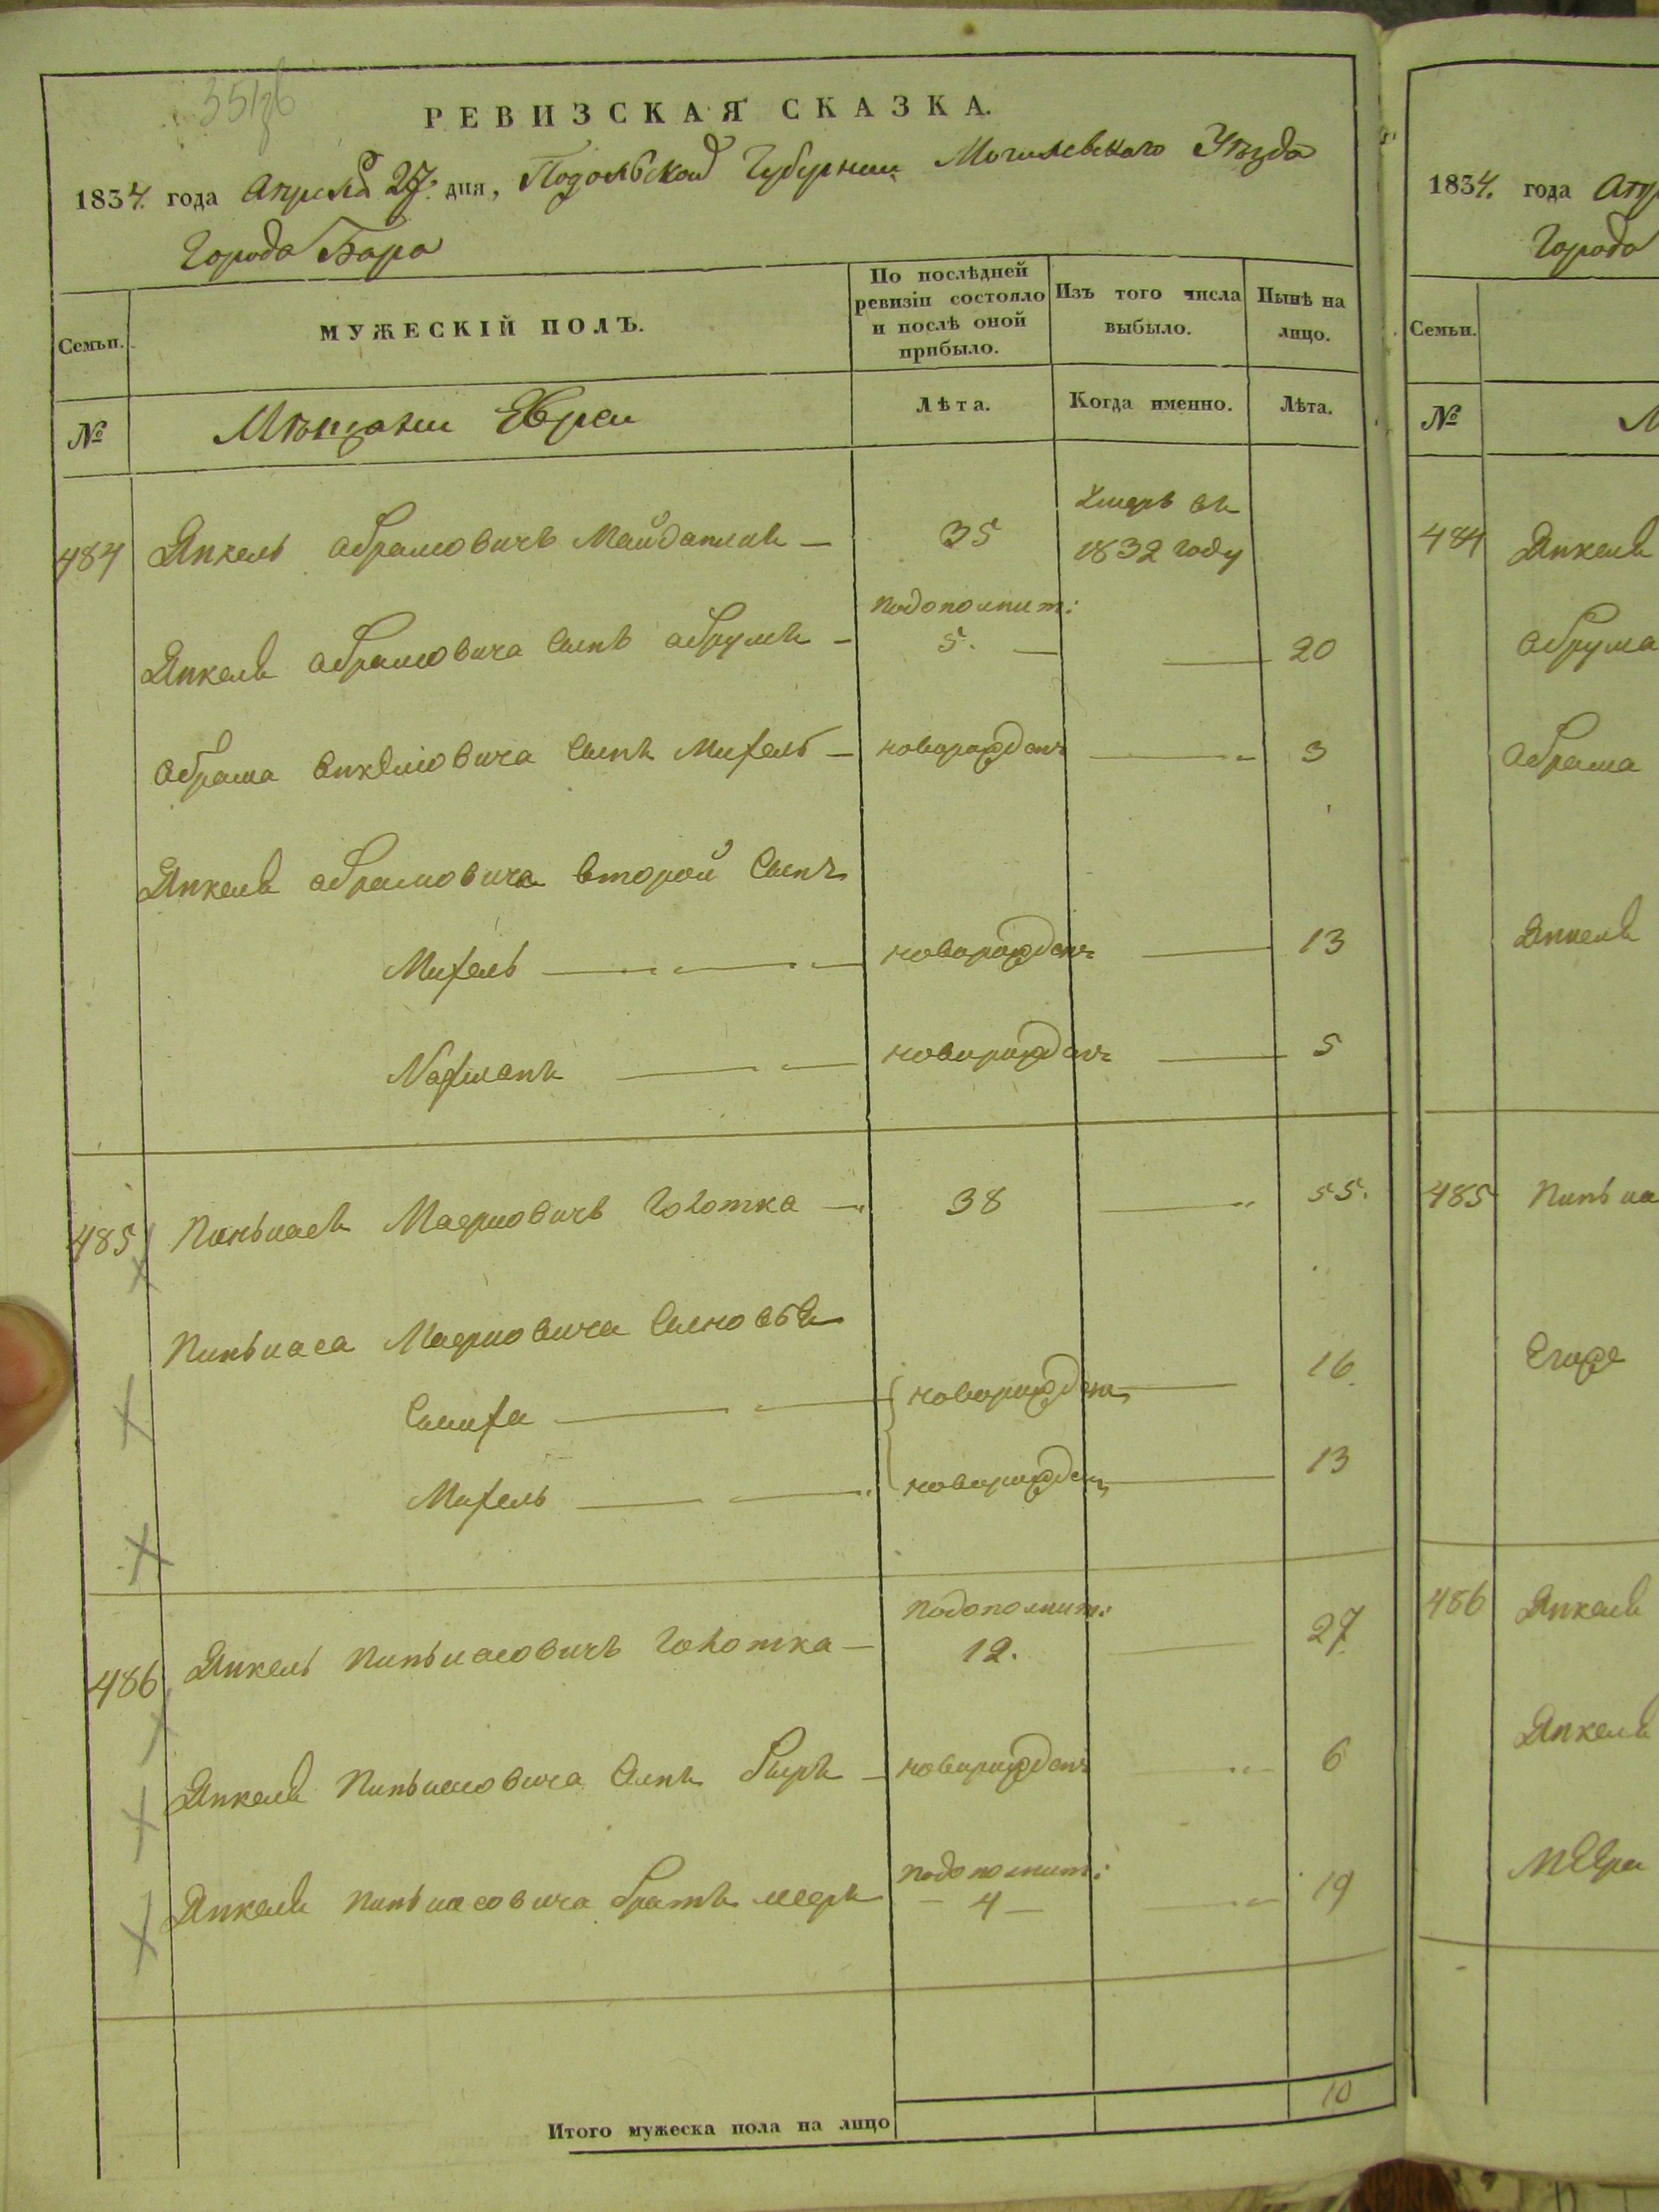 РЕВИЗСКАЯ СКАЗКА.
1834. года Апреля 27. дня, Подольской Губернии Могилевского Уѣзда
Города Бара
Семьи.
МУЖЕСКІЙ ПОЛЪ.
По послѣдней ревизіи состояло и послѣ оной прибыло.
Изъ того числа выбыло.
Нынѣ на лицо.
№
Мѣщани Евреи
Лѣта.
Когда именно.
Лѣта.
484 Янкель Абрамовичъ Майданикъ — 35 Умеръ въ 1832 году
Янкеля Абрамовича сынъ Абрумъ — подополнит: 5. — — 20
Абрама Янкелiовича сынъ Михель — новорожденъ — 3
Янкеля Абрамовича второй сынъ
Михель — новорожденъ — 13
Нахманъ — новорожденъ — 5
485 Пиньхасъ Маерковичъ — 38 — 55.
Пиньхаса Маерковича сыновья
Симха — новорожден — 16
Михель — новорожден — 13
486 Янкель Пиньхасовичъ — подополнит: 12. — 27
Янкеля Пиньхасовича сынъ — новорожденъ — 6
Янкеля Пиньхасовича братъ Мееръ подополнит: — 4 — — 19
Итого мужеска пола на лицо 10
1834. года Апр
Города
Семьи.
№
М
484 Янкеля
Абрума
Абрама
Янкеля
485 Пиньха
486 Янкеля
Янкеля